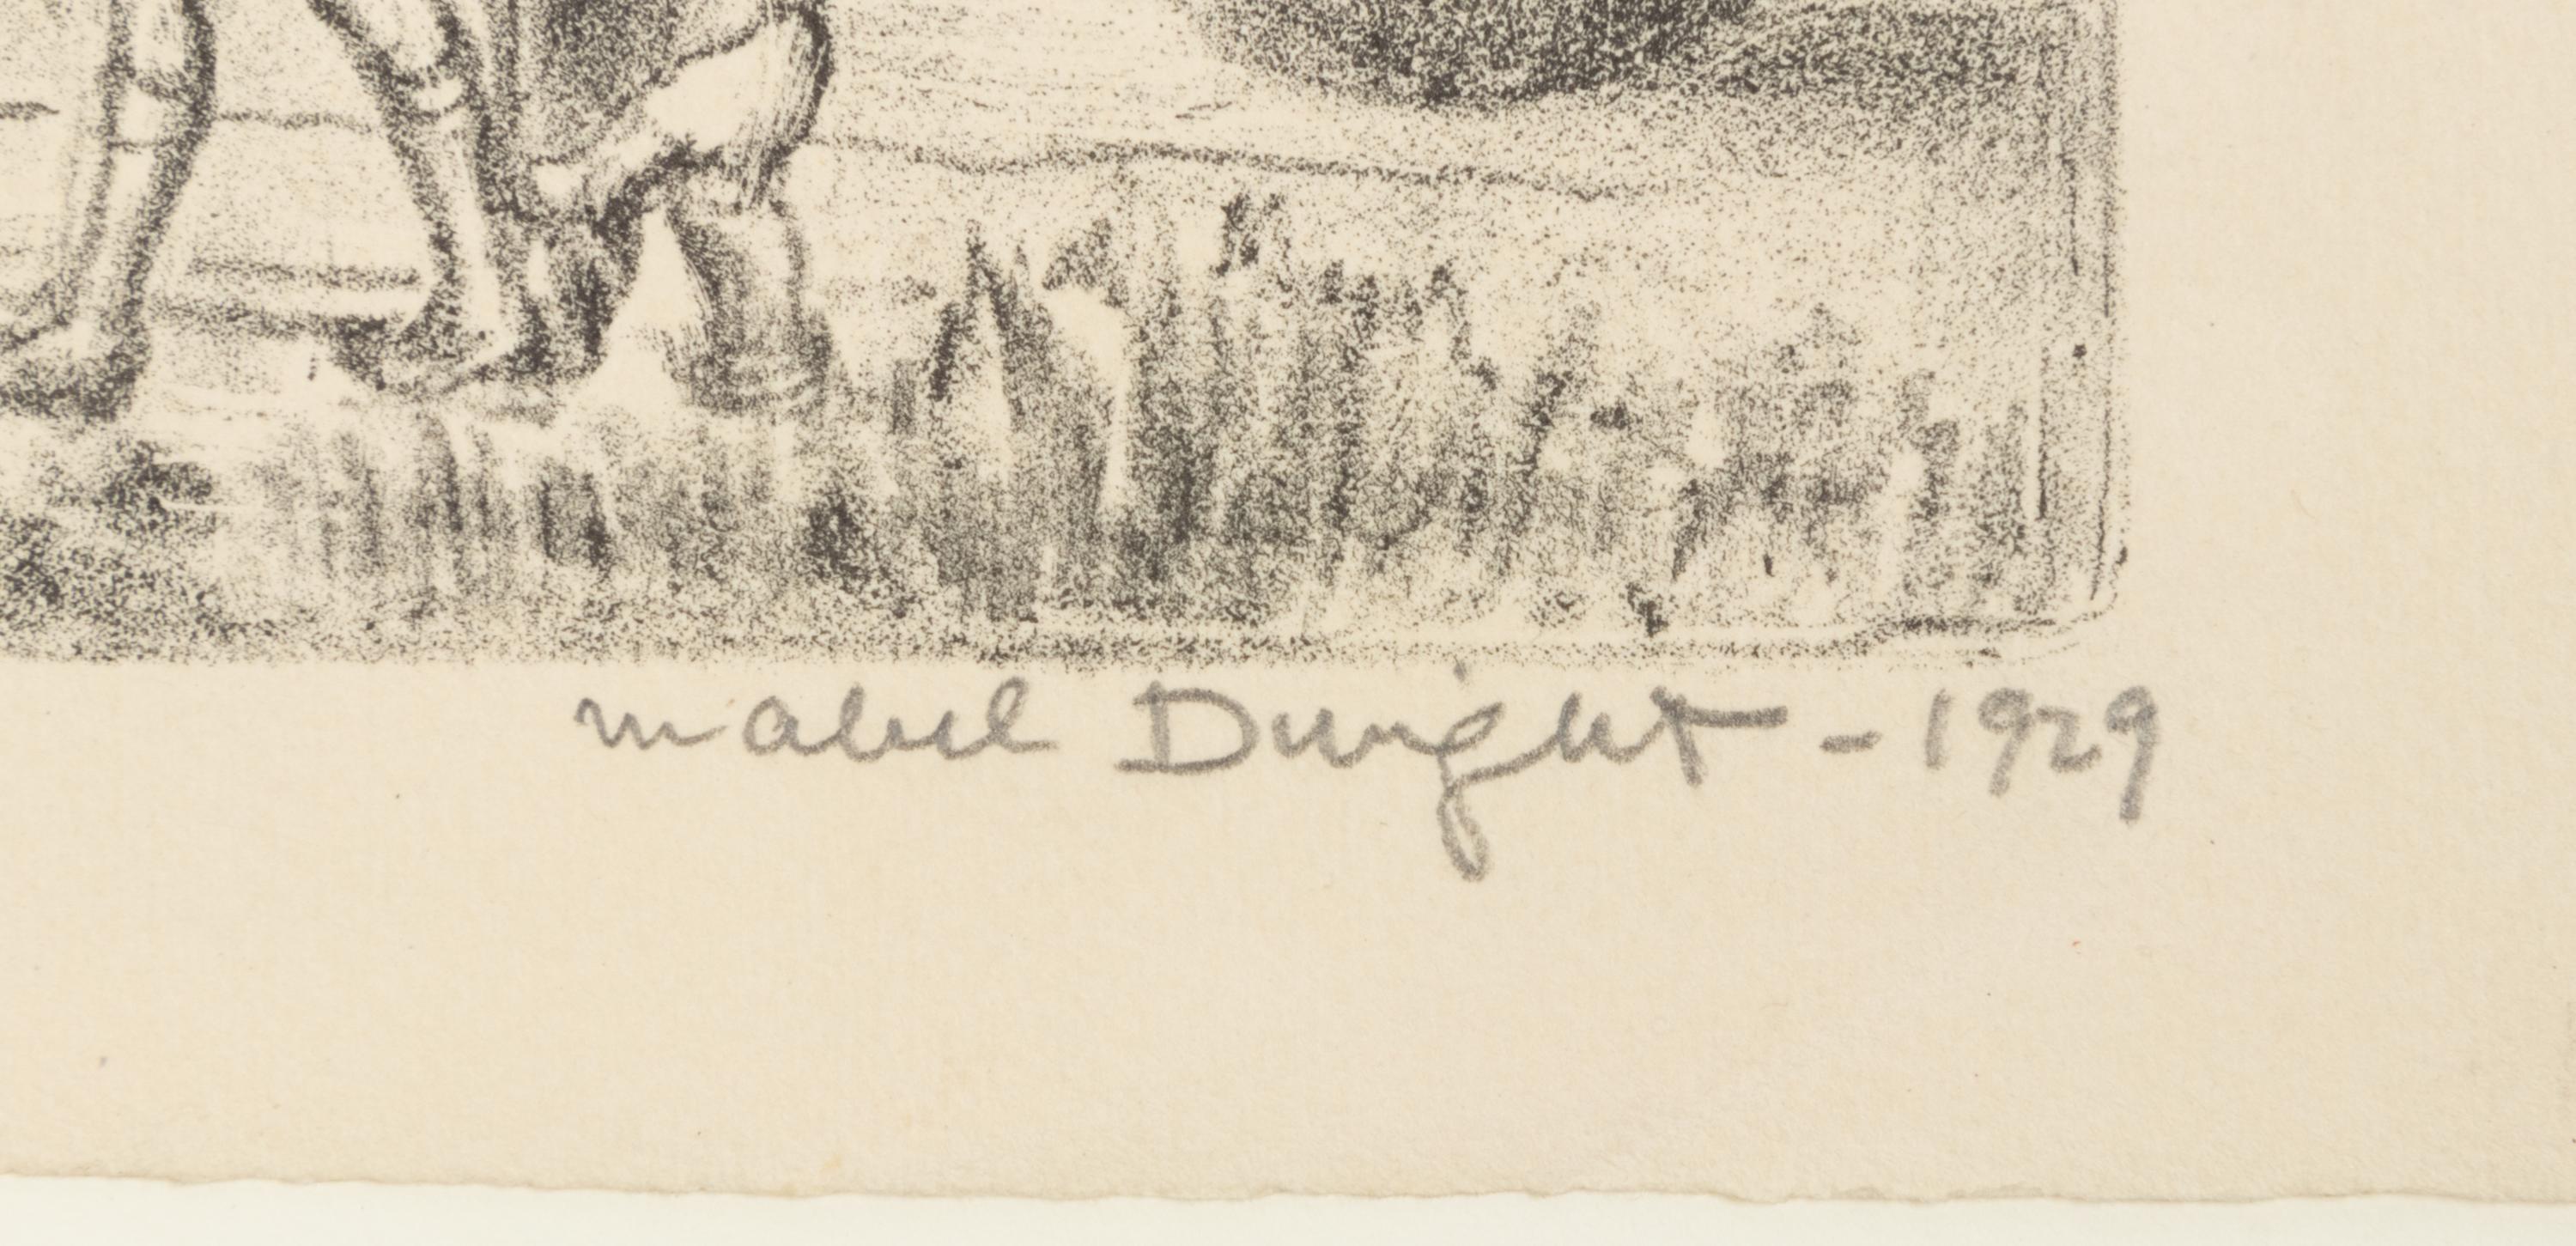 Mabel Dwight - 1929